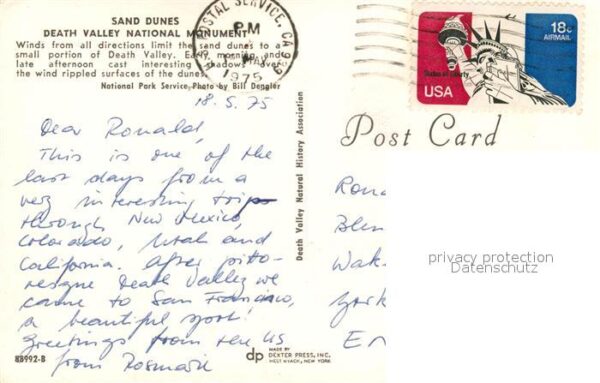 SAND DUNES
DEATH VALLEY NATIONAL MONUMENT
Winds from all directions limit the sand dunes to a
small portion of Death Valley. Early morning and
late afternoon cast interesting shadows over
the wind rippled surfaces of the dunes.
National Park Service Photo by Bill Dengler
POSTAL SERVICE, CA
PM
1975
18c
AIRMAIL
Statue of Liberty
USA
18.5.75
Dear Ronald,
This is one of the
last days from a
very interesting trip
through New Mexico,
Colorado, Utah and
California. After pitto-
resque Death Valley we
came to San Francisco,
a beautiful spot!
Greetings from the US
from Rosmarie
Death Valley Natural History Association
Post Card
Ron
Blen
Wak
York
En
privacy protection
Datenschutz
88992-B
dp
MADE BY
DEXTER PRESS, INC.
WEST NYACK, NEW YORK